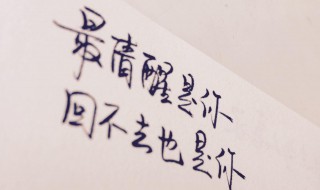 最清醒是你
回不去也是你